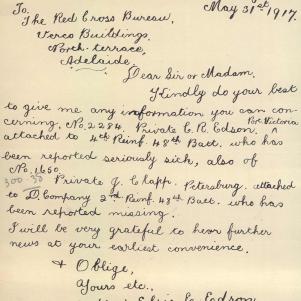 May 31st 1917.
To,
The Red Cross Bureau,
Verco Buildings,
North-terrace,
Adelaide.
Dear Sir or Madam,
Kindly do your best
to give me any information you can con-
Port Victoria
cerning, No. 2284, Private C. R. Edson, ^
attached to 4th Reinf. 48th Batt. who has
been reported seriously sick, also of
No. 1650.
Private J. Clapp. Petersburg. attached
to D. Company 2nd Reinf. 48th Batt. who has
been reported missing.
I will be very grateful to hear further
news at your earliest convenience.
& Oblige,
Yours etc.,